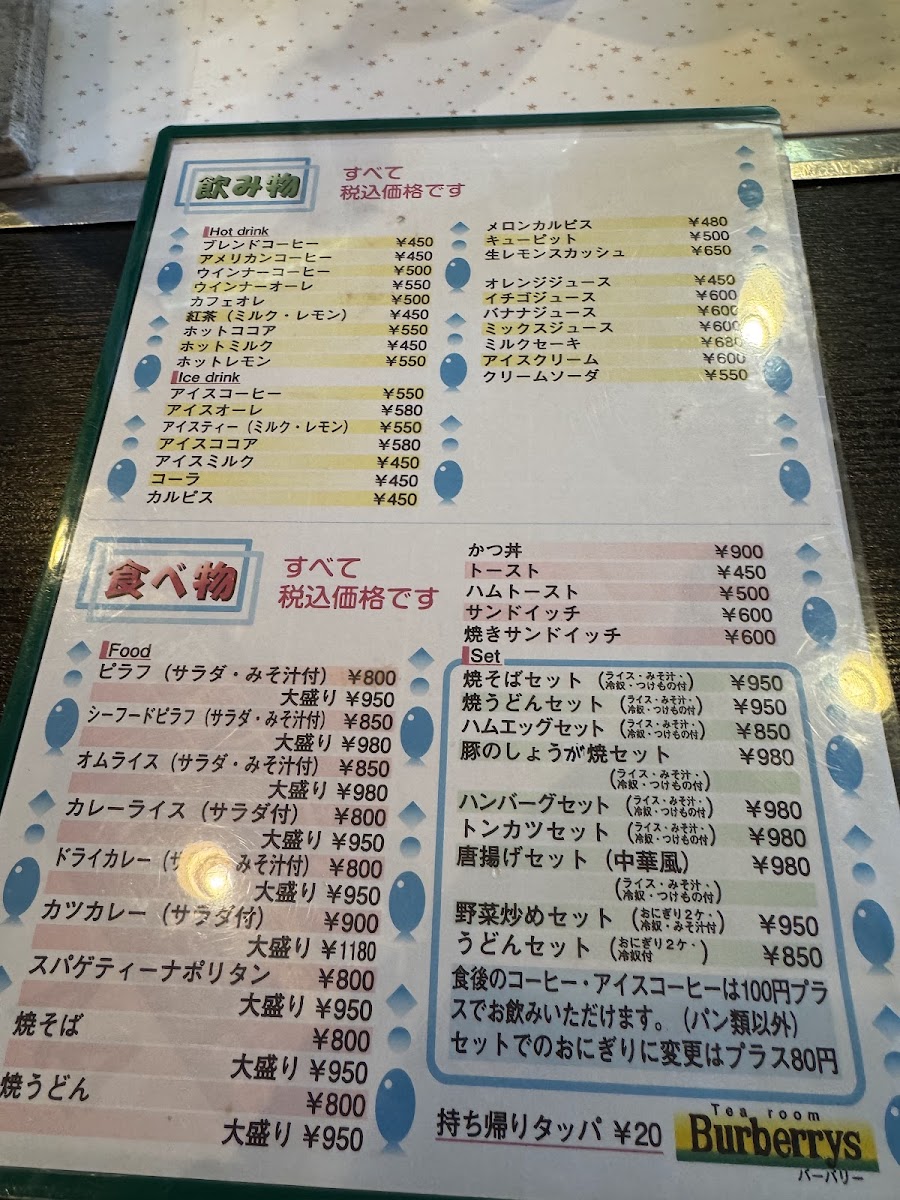 飲み物
すべて
税込価格です
Hot drink
ブレンドコーヒー ¥450
アメリカンコーヒー ¥450
ウインナーコーヒー ¥500
ウインナーオーレ ¥550
カフェオレ ¥500
紅茶（ミルク・レモン） ¥450
ホットココア ¥550
ホットミルク ¥450
ホットレモン ¥550
Ice drink
アイスコーヒー ¥550
アイスオーレ ¥580
アイスティー（ミルク・レモン） ¥550
アイスココア ¥580
アイスミルク ¥450
コーラ ¥450
カルピス ¥450
メロンカルピス ¥480
キューピット ¥500
生レモンスカッシュ ¥650
オレンジジュース ¥450
イチゴジュース ¥600
バナナジュース ¥600
ミックスジュース ¥600
ミルクセーキ ¥680
アイスクリーム ¥600
クリームソーダ ¥550
食べ物
すべて
税込価格です
Food
ピラフ（サラダ・みそ汁付） ¥800
大盛り ¥950
シーフードピラフ（サラダ・みそ汁付） ¥850
大盛り ¥980
オムライス（サラダ・みそ汁付） ¥850
大盛り ¥980
カレーライス（サラダ付） ¥800
大盛り ¥950
ドライカレー（サ みそ汁付） ¥800
大盛り ¥950
カツカレー（サラダ付） ¥900
大盛り ¥1180
スパゲティーナポリタン ¥800
大盛り ¥950
焼そば ¥800
大盛り ¥950
焼うどん ¥800
大盛り ¥950
かつ丼 ¥900
トースト ¥450
ハムトースト ¥500
サンドイッチ ¥600
焼きサンドイッチ ¥600
Set
焼そばセット（ライス・みそ汁・冷奴・つけもの付） ¥950
焼うどんセット（ライス・みそ汁・冷奴・つけもの付） ¥950
ハムエッグセット（ライス・みそ汁・冷奴・つけもの付） ¥850
豚のしょうが焼セット ¥980
（ライス・みそ汁・冷奴・つけもの付）
ハンバーグセット（ライス・みそ汁・冷奴・つけもの付） ¥980
トンカツセット（ライス・みそ汁・冷奴・つけもの付） ¥980
唐揚げセット（中華風） ¥980
（ライス・みそ汁・冷奴・つけもの付）
野菜炒めセット（おにぎり2ケ・冷奴・みそ汁付） ¥950
うどんセット（おにぎり2ケ・冷奴付） ¥850
食後のコーヒー・アイスコーヒーは100円プラ
スでお飲みいただけます。（パン類以外）
セットでのおにぎりに変更はプラス80円
持ち帰りタッパ ¥20
Tea room
Burberrys
バーバリー